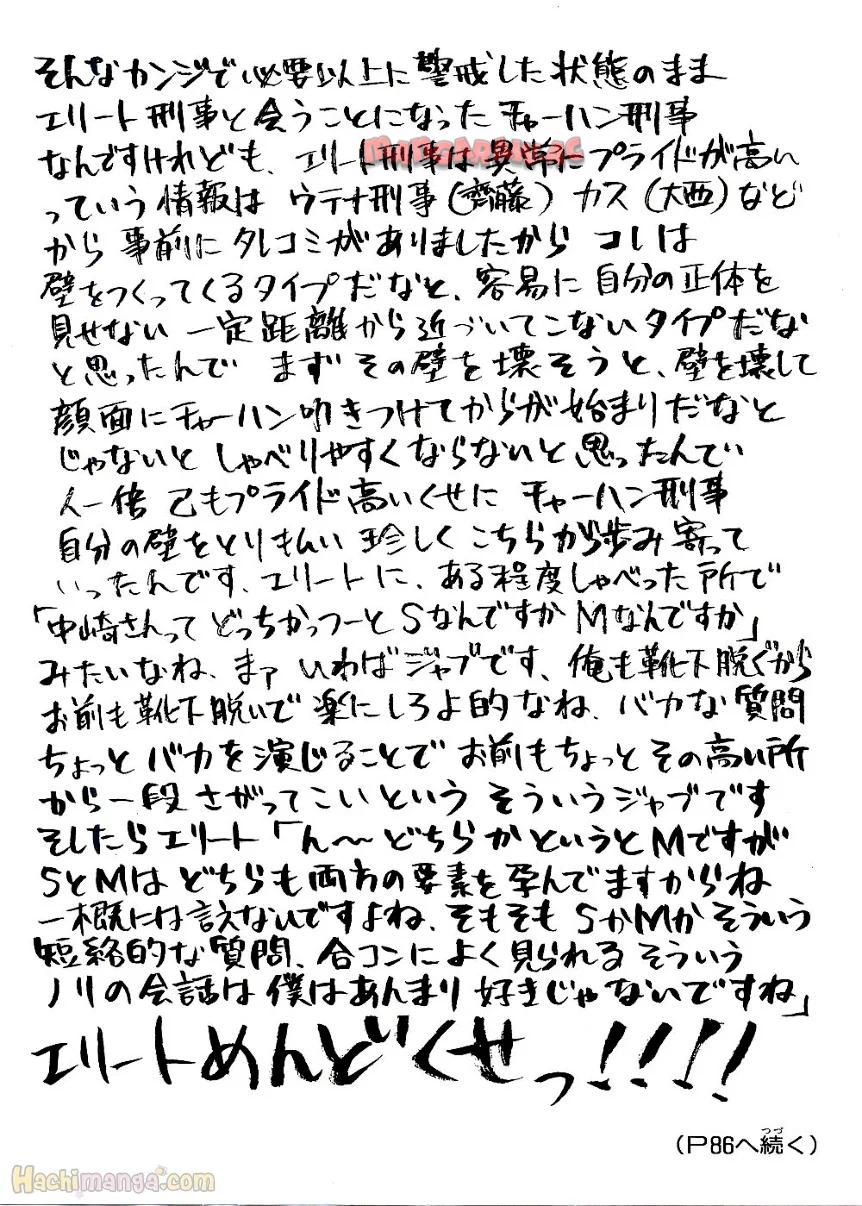 そんなカンジで必要以上に警戒した状態のまま
エリート刑事と会うことになったチャーハン刑事
なんですけれども、エリート刑事は異常にプライドが高い
っていう情報は ウテナ刑事(齊藤) カス(大西)など
から 事前にタレコミがありましたから コレは
壁をつくってくるタイプだなと、容易に自分の正体を
見せない 一定距離から近づいてこないタイプだな
と思ったんで まず その壁を壊そうと、壁を壊して
顔面にチャーハン叩きつけてからが始まりだなと
じゃないと しゃべりやすくならないと思ったんでい
人一倍 己もプライド高いくせに チャーハン刑事
自分の壁をとりはらい 珍しく こちらから歩み寄って
いったんです、エリートに、ある程度しゃべった所で
「中崎さんって どっちかっつーと SなんですかMなんですか」
みたいなね、まァ いわばジャブです、俺も靴下脱ぐから
お前も靴下脱いで 楽にしろよ的なね、バカな質問
ちょっとバカを演じることで お前もちょっとその高い所
から一段 さがってこいという そういうジャブです
そしたらエリート「ん〜 どちらかというとMですが
SとMは どちらも両方の要素を孕んでますからね
一概には言えないですよね、そもそも SかMか そういう
短絡的な質問、合コンによく見られる そういう
ノリの会話は 僕はあんまり 好きじゃないですね」
エリートめんどくせっ!!!!
(P86へ続く)
つづ
MANGARAW.AC
Hachimanga.com